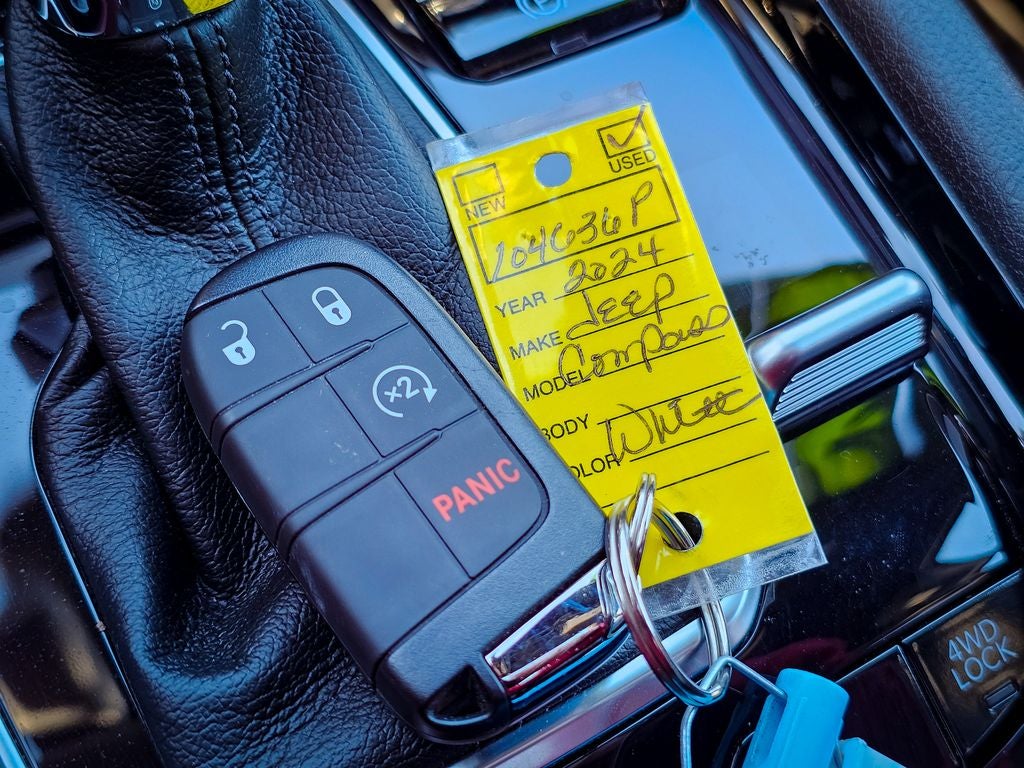 NEW USED
104636P
YEAR 2024
MAKE Jeep
MODEL Compass
BODY
COLOR White
x2
PANIC
4WD
LOCK